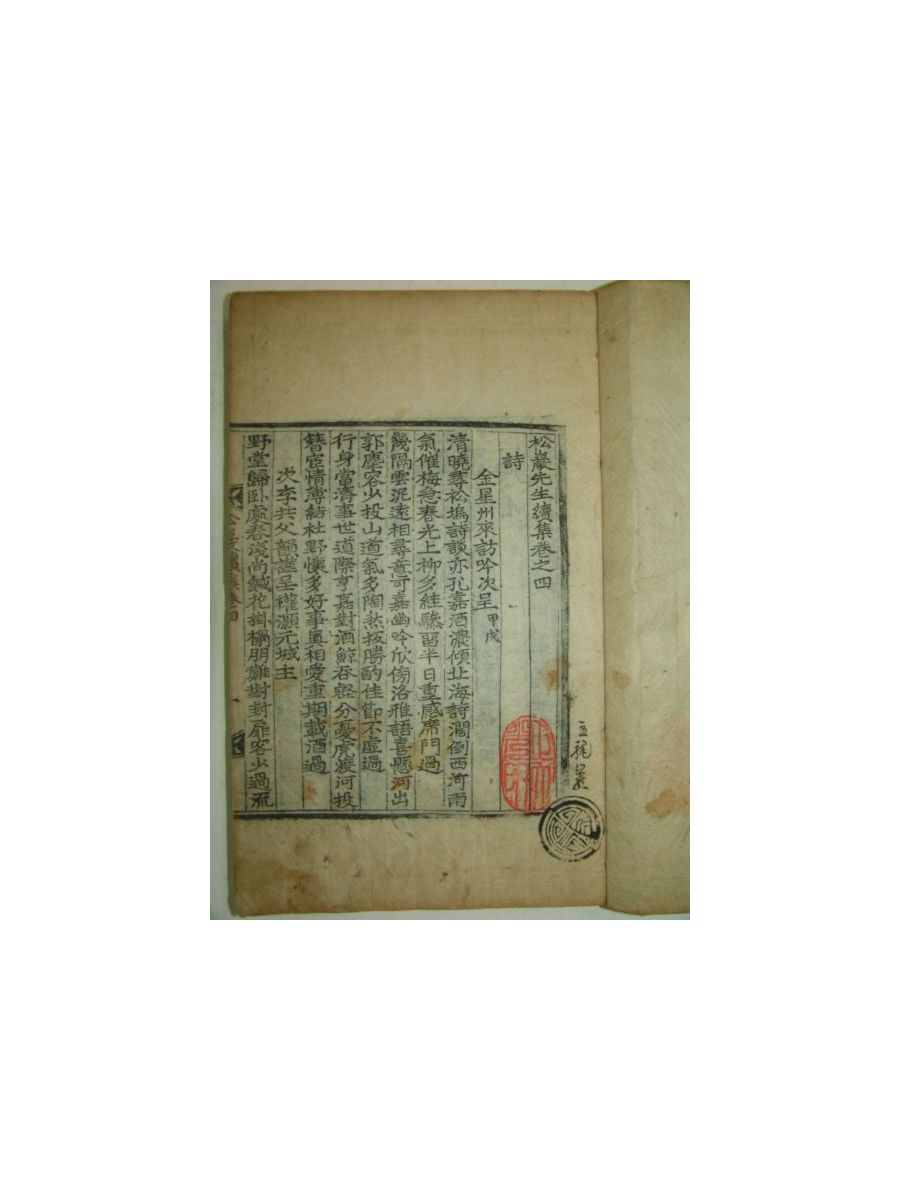 松巖先生續集卷之四
詩
金星州來訪吟次呈 甲戌
清曉尋松塢詩談亦孔嘉酒濃傾北海詩濶倒西河雨
氣催梅急春光上柳多絓驂留半日重感席門過
幾隔雲泥遠相尋意可嘉幽吟欣傍洛雅語喜懸河出
郭塵客少投山道氣多陶然拔勝酌佳節不虛過
行身當濟事世道際亨嘉對酒鯨吞壑分憂虎渡河投
簪宦情薄結社野懷多好事眞相愛重期載酒過
次李共父韻謹呈權灝元城主
野堂歸卧處春淺尚緘花掛榻朋難對封扉客少過流